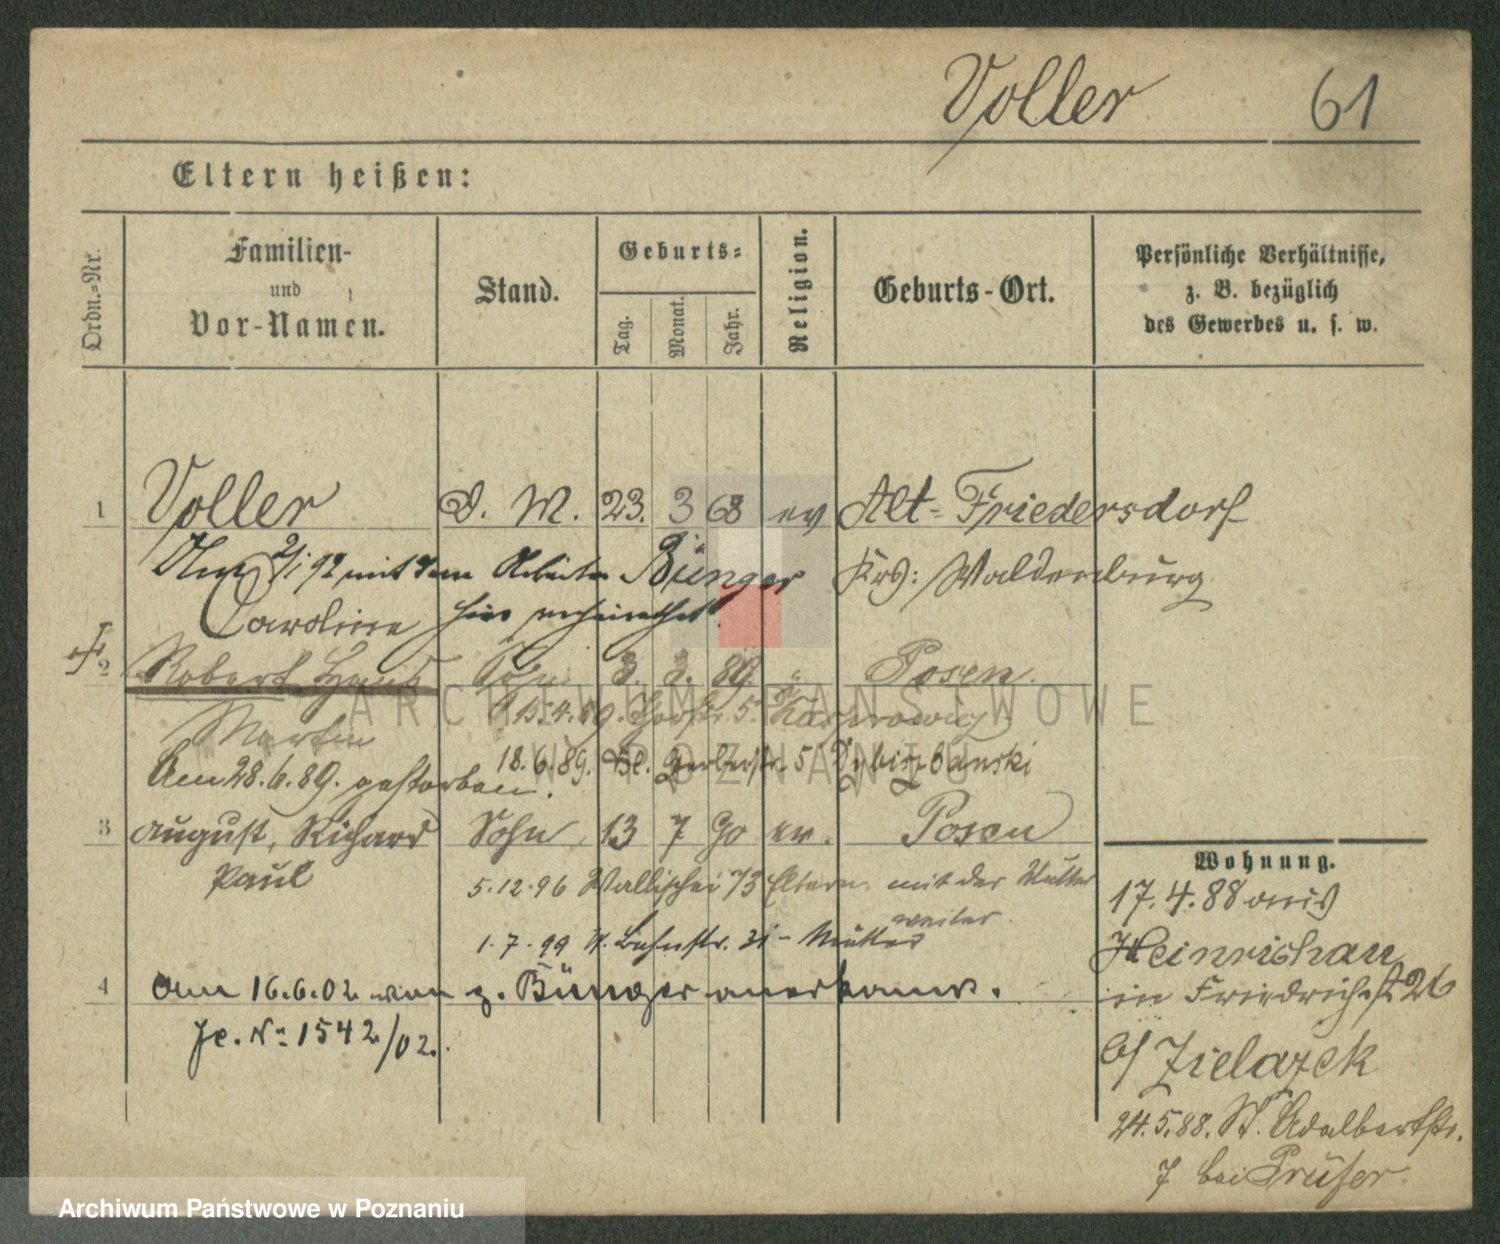 Voller 61
Eltern heißen:
Ordn.-Nr.
Familien-
und
Vor-Namen.
Stand.
Geburts-
Tag.
Monat.
Jahr.
Religion.
Geburts-Ort.
Persönliche Verhältnisse,
z. B. bezüglich
des Gewerbes u. s. w.
1 Voller D. M. 23. 3 68 ev Alt-Friedersdorf
2/1 92 mit dem Arbeiter Bünger Krs: Waldenburg
Caroline hier verheirathet.
2 Robert Sohn 3. 3. 89 " Posen.
Martin 15.4.89. 5.
18.6.89. Gerberstr. 5
Am 28.6.89. gestorben.
3 August, Richard Sohn 13 7 90 ev. Posen
Paul
5.12.96 Wallischei 73 Eltern mit der Mutter
weiter
1.7.99 31 - Mutter
4 Am 16.6.02 von g. Bünger anerkannt.
Je. No 1542/02.
Wohnung.
17.4.88 aus
Heinrichau
in Friedrichst 26
b/ Zielazek
24.5.88. St. Adalbertstr.
7 bei Prüfer
ARCHIWUM PAŃSTWOWE
W POZNANIU
Archiwum Państwowe w Poznaniu